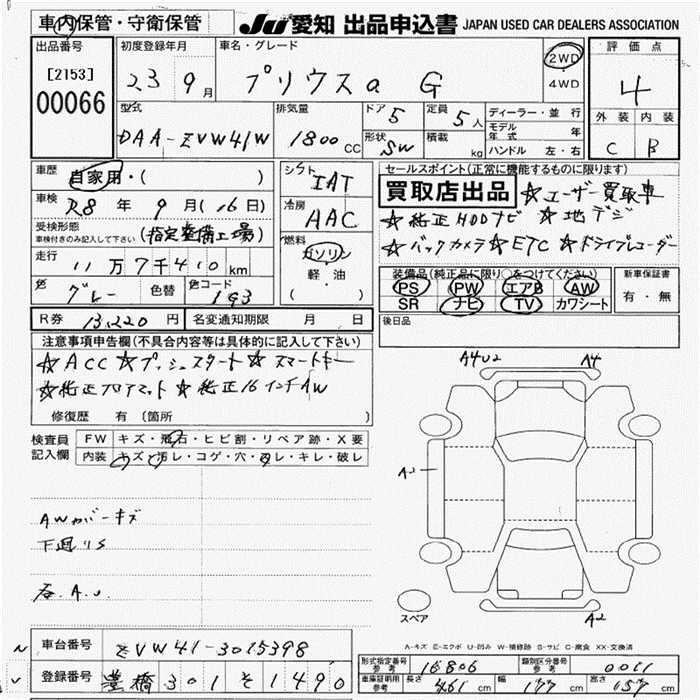 車内保管・守衛保管 JU愛知 出品申込書 JAPAN USED CAR DEALERS ASSOCIATION
出品番号 初度登録年月 車名・グレード 評価点
[2153] 23 9月 プリウスα G 2WD・4WD 4
00066
型式 排気量 ドア 5 定員 5人 ディーラー・並行 外装 内装
DAA-ZVW41W 1800cc 形状 SW 積載 kg モデル年式 年 C B
ハンドル 左・右
車歴 自家用・( ) シフト IAT セールスポイント(正常に機能するものに限ります)
車検 R8年 9月(16日) 冷房 AAC 買取店出品 ☆ユーザー買取車
受検形態 (指定整備工場) ☆純正HDDナビ ☆地デジ
車検付きのみ記入して下さい
☆バックカメラ☆ETC☆ドライブレコーダー
走行 11万7千410km 燃料 ガソリン 軽・油 ( )
装備品(純正品に限り○をつけてください) 新車保証書
色 グレー 色替 色コード 1G3 PS PW エアB AW 有・無
SR ナビ TV カワシート
R券 13,220円 名変通知期限 月 日 後日品
注意事項申告欄(不具合内容等は具体的に記入して下さい)
☆ACC☆プッシュスタート☆スマートキー
☆純正フロアマット☆純正16インチAW
修復歴 有(箇所
A4U2 A4
検査員記入欄 FW キズ・飛石・ヒビ割・リペア跡・X要
内装 キズ・汚レ・コゲ・穴・ヌレ・キレ・破レ
AWカバーキズ
下廻りS
スペア A2
A-キズ E-エクボ U-凹み W-補修跡 S-サビ C-腐食 XX-交換済
車台番号 ZVW41-3015398
型式指定番号 参考 16806 類別区分番号 参考 0011
登録番号 豊橋 301 そ 1490
車庫証明用 参考 長さ 461cm 幅 177cm 高さ 157cm